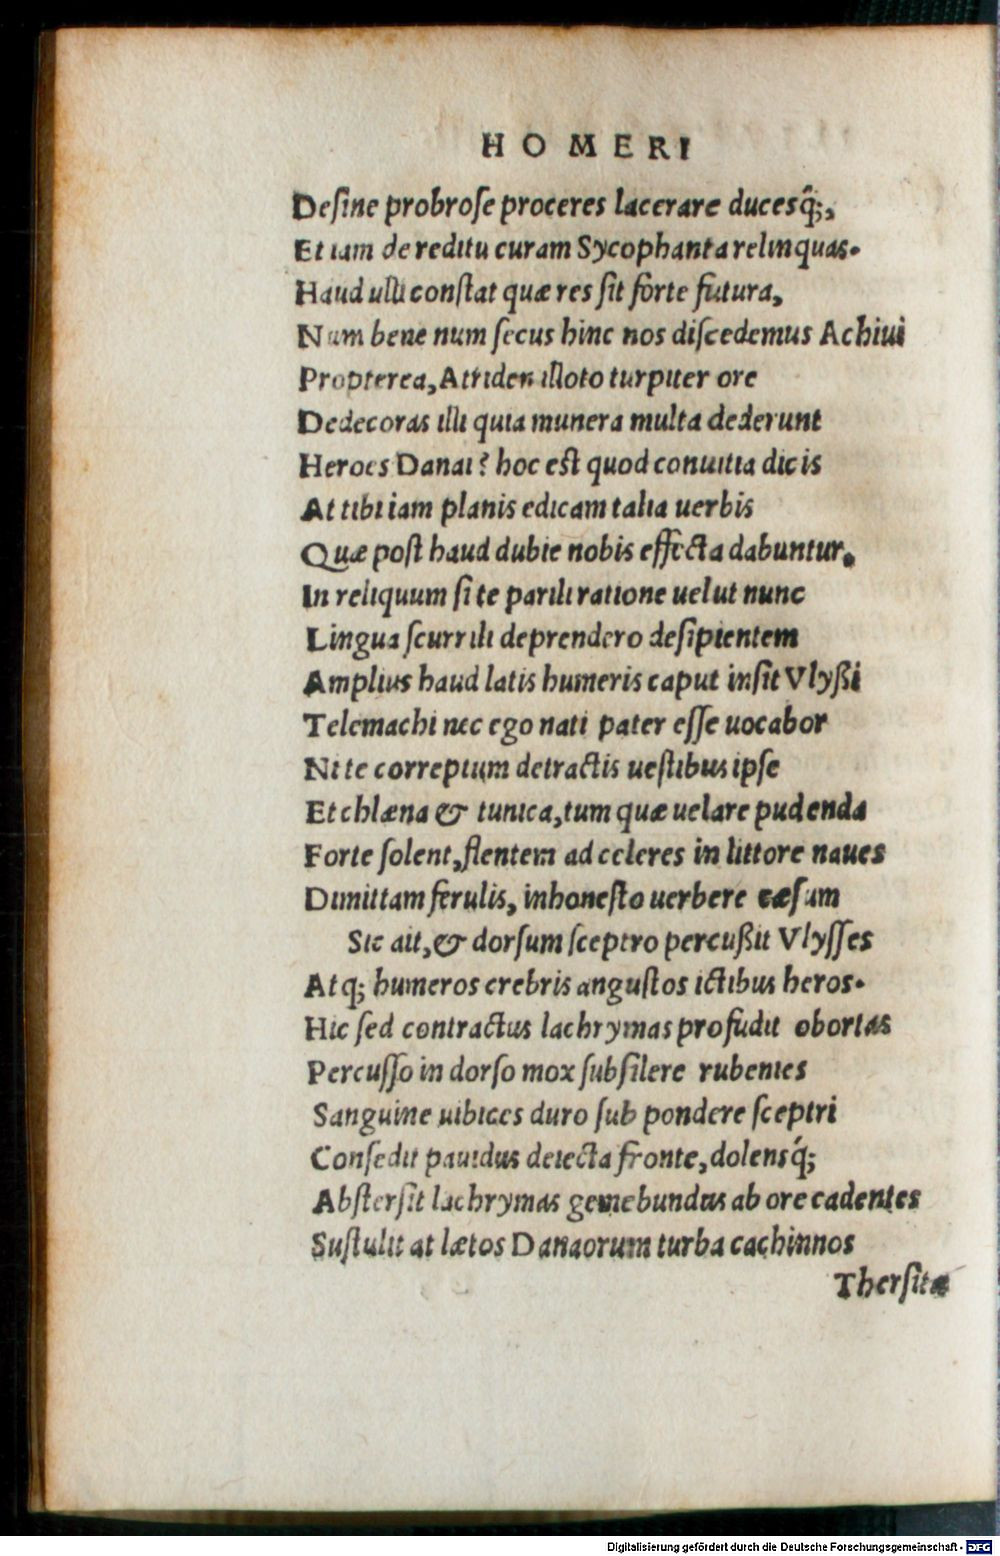 HOMERI
Desine probrose proceres lacerare ducesq́;,
Et iam de reditu curam Sycophanta relinquas.
Haud ulli constat quæ res sit forte futura,
Num bene num secus hinc nos discedemus Achiui
Propterea, Atriden illoto turpiter ore
Dedecoras illi quia munera multa dederunt
Heroes Danai? hoc est quod conuitia dicis
At tibi iam planis edicam talia uerbis
Quæ post haud dubie nobis effecta dabuntur.
In reliquum si te parili ratione uelut nunc
Lingua scurrili deprendero desipientem
Amplius haud latis humeris caput insit Vlyßi
Telemachi nec ego nati pater esse uocabor
Ni te correptum detractis uestibus ipse
Et chlæna & tunica, tum quæ uelare pudenda
Forte solent, flentem ad celeres in littore naues
Dimittam ferulis, inhonesto uerbere cæsum
Sic ait, & dorsum sceptro percußit Vlysses
Atq; humeros crebris angustos ictibus heros.
Hic sed contractus lachrymas profudit obortas
Percusso in dorso mox subsilere rubentes
Sanguine uibices duro sub pondere sceptri
Consedit pauidus deiecta fronte, dolensq́;
Abstersit lachrymas gemebundus ab ore cadentes
Sustulit at lætos Danaorum turba cachinnos
Thersitæ
Digitalisierung gefördert durch die Deutsche Forschungsgemeinschaft - DFG